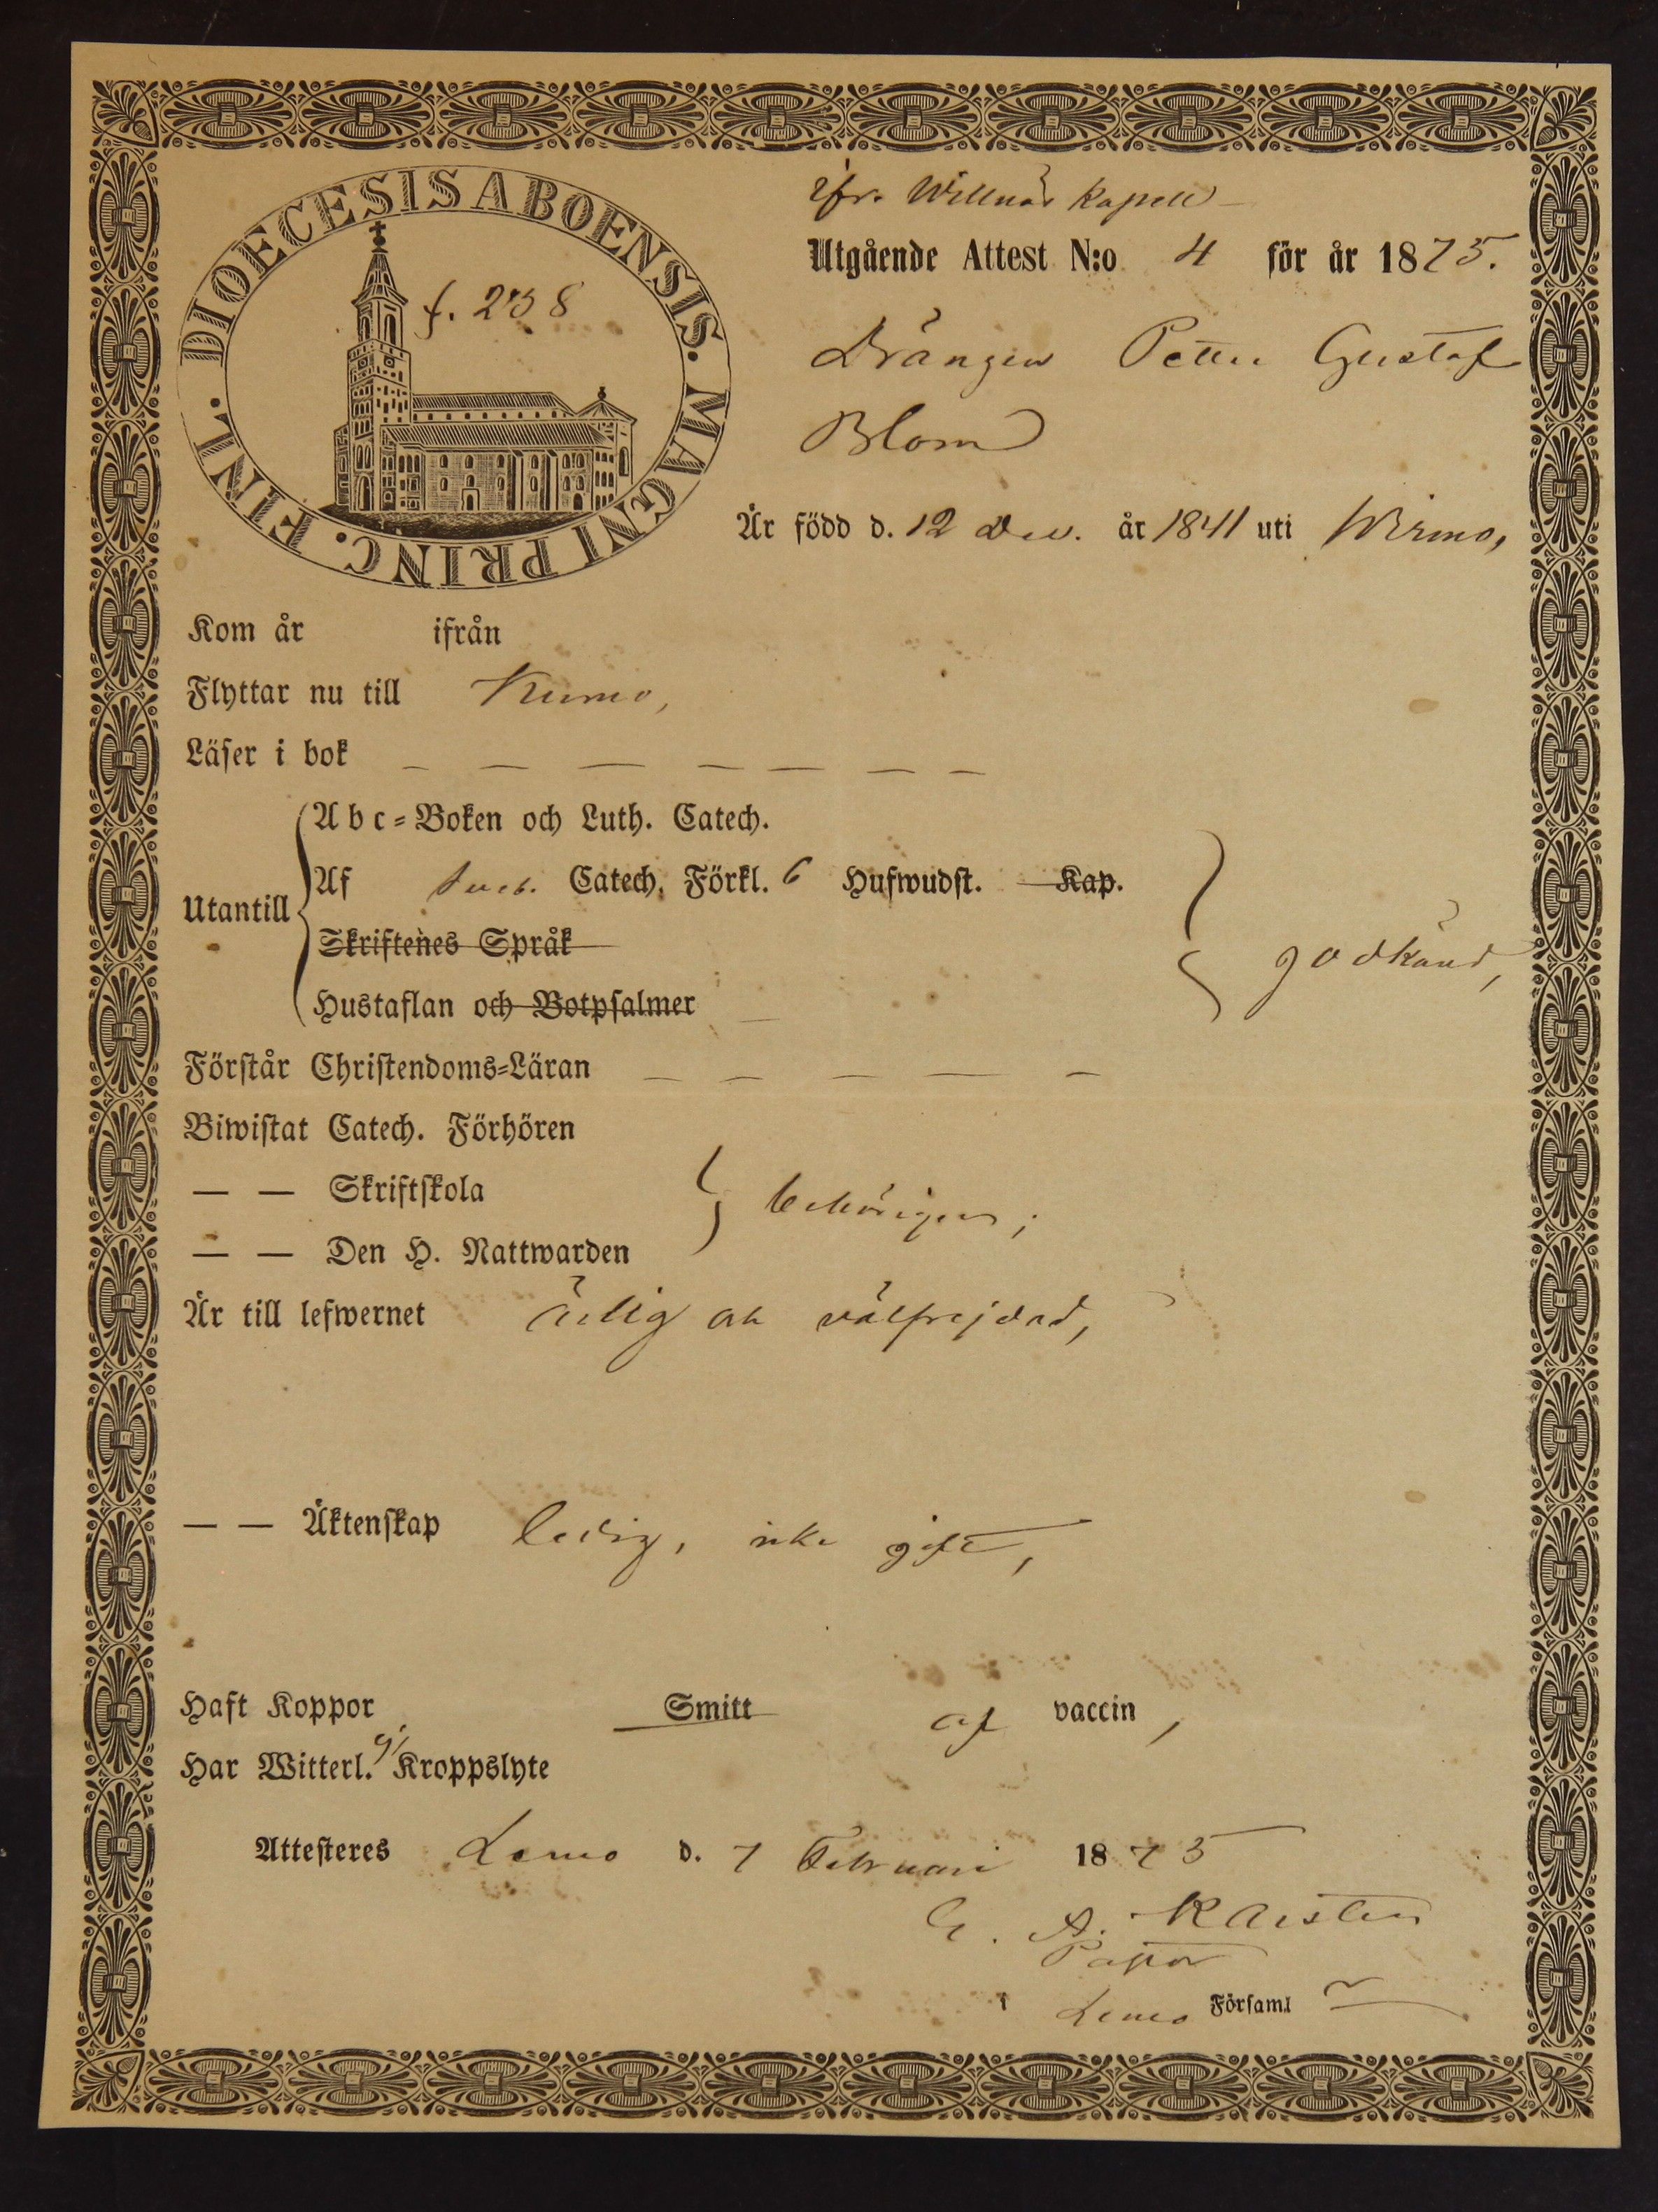 DIOECESIS ABOENSIS. MAGNI PRINC. FINL.
f. 238
ifr. Willnäs Kapell
Utgående Attest N:o 4 för år 1875.
Drängen Petter Gustaf
Blom
Är född d. 12 Dec. år 1841 uti Wirmo,
Kom år ifrån
Flyttar nu till Kumo,
Läser i bok — — — — — — —
Utantill
Abc-Boken och Luth. Catech.
Af Sveb. Catech. Förkl. 6 Hufwudst. Kap.
Skriftenes Språk
Hustaflan och Botpsalmer
godkänd,
Förstår Christendoms-Läran — — — — —
Biwistat Catech. Förhören
— — Skriftskola
behörigen;
— — Den H. Nattwarden
Är till lefwernet ärlig och välfrejdad,
— — Äktenskap ledig, icke gift,
Haft Koppor Smitt af vaccin,
Har Witterl. ej Kroppslyte
Attesteres Lemo d. 7 Februari 1875
G. A. Karsten
Pastor
i Lemo Församl